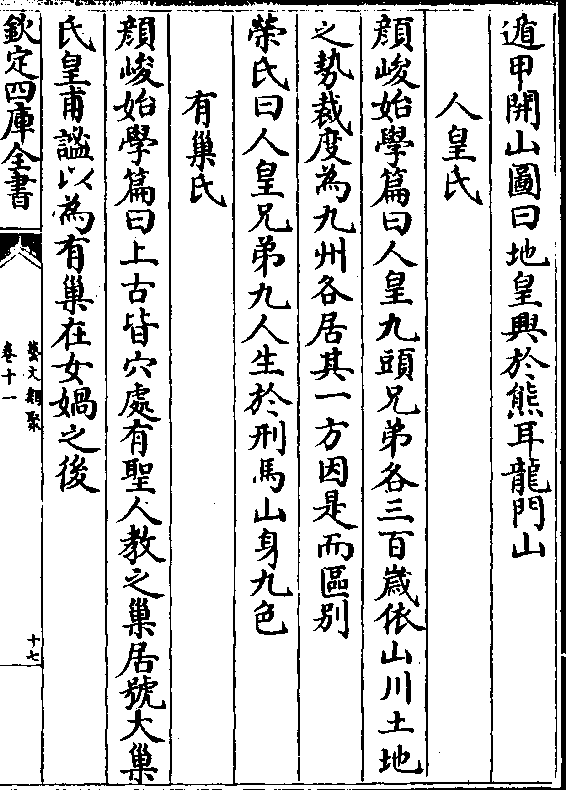 遁甲開山圖曰地皇興於熊耳龍門山
人皇氏
顔峻始學篇曰人皇九頭兄弟各三百嵗依山川土地
之勢裁度為九州各居其一方因是而區别
榮氏曰人皇兄弟九人生於刑馬山身九色
有巢氏
顔峻始學篇曰上古皆穴處有聖人教之巢居號大巢
氏皇甫謐以為有巢在女媧之後
欽定四庫全書
藝文類聚
卷十一
十七